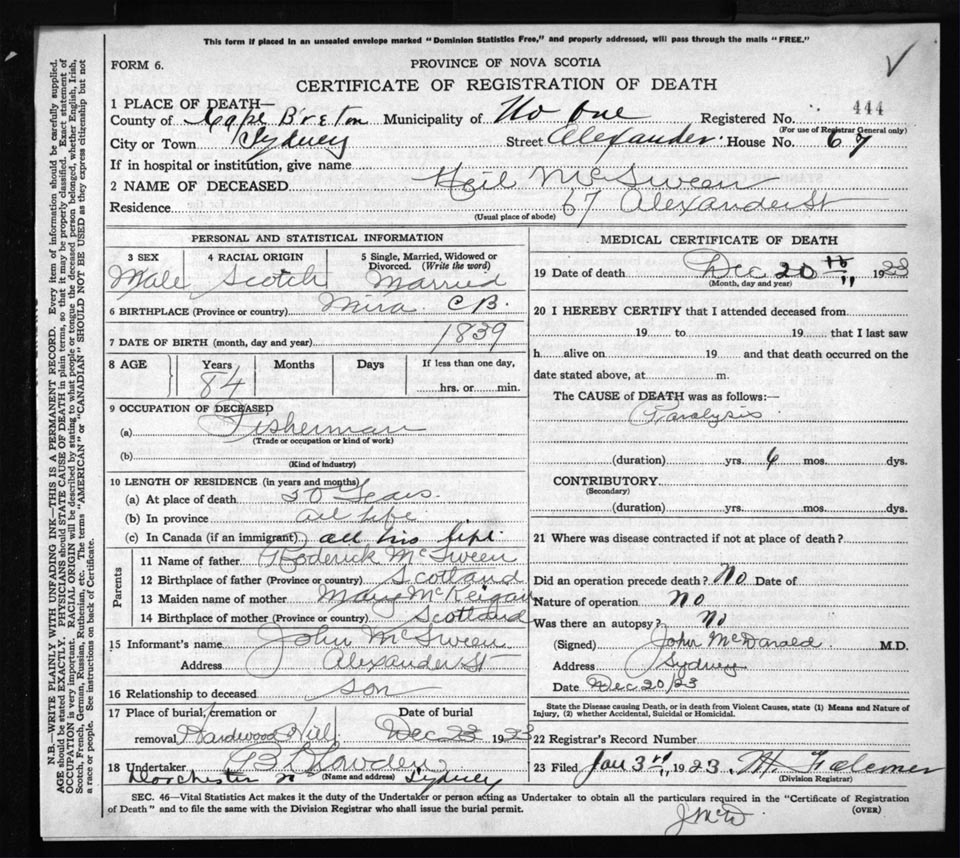 This form if placed in an unsealed envelope marked "Dominion Statistics Free," and properly addressed, will pass through the mails "FREE."
FORM 6.
PROVINCE OF NOVA SCOTIA
CERTIFICATE OF REGISTRATION OF DEATH
1 PLACE OF DEATH—
County of Cape Breton Municipality of No One Registered No. 444
(For use of Registrar General only)
City or Town Sydney Street Alexander House No. 67
If in hospital or institution, give name
2 NAME OF DECEASED Neil McSween
Residence 67 Alexander St
(Usual place of abode)
PERSONAL AND STATISTICAL INFORMATION
3 SEX 4 RACIAL ORIGIN 5 Single, Married, Widowed or Divorced. (Write the word)
Male Scotch Married
6 BIRTHPLACE (Province or country) Mira C B.
7 DATE OF BIRTH (month, day and year) 1839
8 AGE Years Months Days If less than one day,
84 hrs. or min.
9 OCCUPATION OF DECEASED
(a) Fisherman
(Trade or occupation or kind of work)
(b)
(Kind of industry)
10 LENGTH OF RESIDENCE (in years and months)
(a) At place of death 50 Years.
(b) In province all life
(c) In Canada (if an immigrant) all his life
Parents
11 Name of father Roderick McSween
12 Birthplace of father (Province or country) Scotland
13 Maiden name of mother Mary McKeigan
14 Birthplace of mother (Province or country) Scotland
15 Informant's name John McSween
Address Alexander St
16 Relationship to deceased son
17 Place of burial, cremation or removal Hardwood Hill Date of burial Dec 23 1923
18 Undertaker
(Name and address) Dorchester Sydney
MEDICAL CERTIFICATE OF DEATH
19 Date of death Dec 20 th 1923
(Month, day and year)
20 I HEREBY CERTIFY that I attended deceased from
19 to 19 that I last saw
h alive on 19 and that death occurred on the
date stated above, at m.
The CAUSE of DEATH was as follows:—
Paralysis
(duration) yrs. 6 mos. dys.
CONTRIBUTORY
(Secondary)
(duration) yrs. mos. dys.
21 Where was disease contracted if not at place of death?
Did an operation precede death? No Date of
Nature of operation No
Was there an autopsy? No
(Signed) John McDonald M.D.
Address Sydney
Date Dec 20/23
State the Disease causing Death, or in death from Violent Causes, state (1) Means and Nature of
Injury, (2) whether Accidental, Suicidal or Homicidal.
22 Registrar's Record Number
23 Filed Jan 3rd 1923
(Division Registrar)
SEC. 46—Vital Statistics Act makes it the duty of the Undertaker or person acting as Undertaker to obtain all the particulars required in the "Certificate of Registration
of Death" and to file the same with the Division Registrar who shall issue the burial permit.
(OVER)
J McD
N.B.—WRITE PLAINLY WITH UNFADING INK—THIS IS A PERMANENT RECORD. Every item of information should be carefully supplied.
AGE should be stated EXACTLY. PHYSICIANS should STATE CAUSE OF DEATH in plain terms, so that it may be properly classified. Exact statement of
OCCUPATION is very important. RACIAL ORIGIN will be described by stating to what people or tongue the deceased person belonged, whether English, Irish,
Scotch, French, German, Russian, Ruthenian, etc. The terms "AMERICAN" or "CANADIAN" SHOULD NOT BE USED as they express citizenship but not
a race or people. See instructions on back of Certificate.